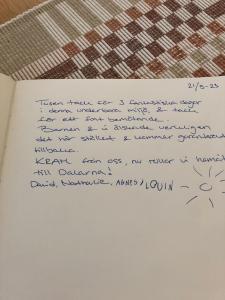 21/5-23
Tusen tack för 3 fantastiska dagar
i denna underbara miljö, & tack
för ett fint bemötande.
Barnen & vi älskade verkligen
det här stället & kommer garanterat
tillbaka.
KRAM från oss, nu rullar vi hemåt
till Dalarna!
David, Nathalie, AGNES, LOUIN